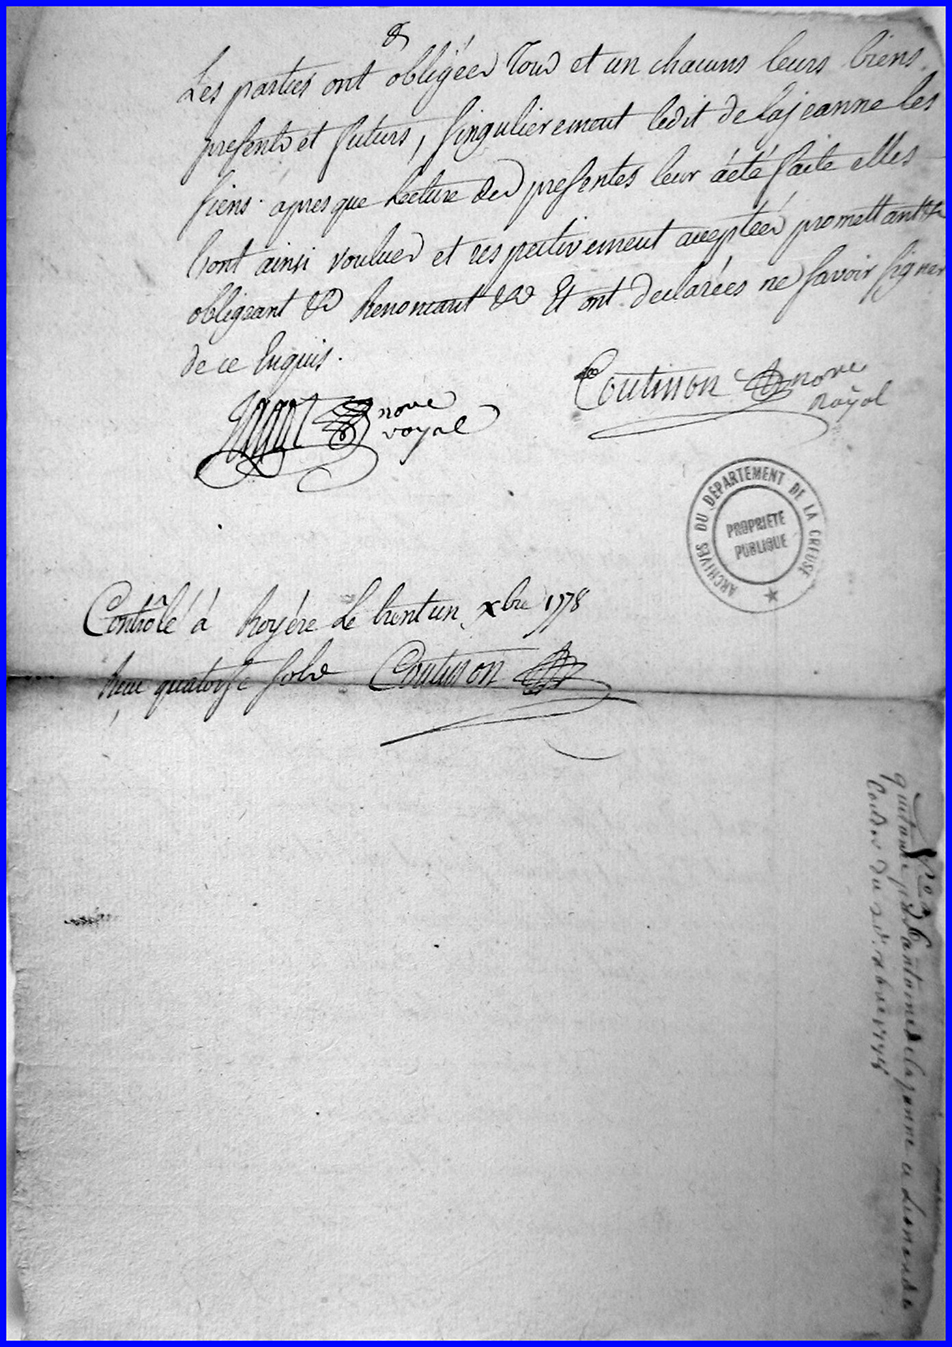 &
Les parties ont obligéés Tous et un chacuns leurs biens
presents et futurs, singulierement ledit delajeanne les
siens. apres que Lecture des presentes leur áété faite elles
l'ont ainsi voulues et respectivement accepteés promettant
obligeant &a Renoncant &a Et ont declareés ne Savoir Signer
de ce Enquis.
nore
royal
Coutisson nore
Royal
ARCHIVES DU DÉPARTEMENT DE LA CREUSE
PROPRIÉTÉ
PUBLIQUE
Contrôlé á Royére Le trent un xbre 1778
Recu quatorze sols Coutisson
quittance pr antoine delajeanne a Lionard